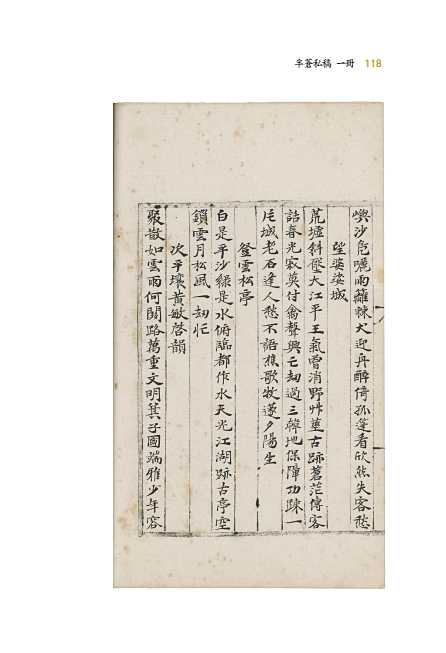 半蒼私稿 一冊 118
嶼沙鳧曬雨籬棘犬迎舟醉倚孤篷看欣然失客愁
望婆娑城
荒墟斜壓大江平王氣曾消野艸莖古跡蒼茫傳客
話春光寂莫付禽聲興亡劫過三韓地保障功踈一
片城老石逢人愁不語樵歌牧篴夕陽生
登雲松亭
白是平沙綠是水俯臨都作水天光江湖跡古亭空
鎖雲月松風一劫忙
次平壤黃敏啓韻
聚散如雲雨何關路萬重文明箕子國端雅少年容